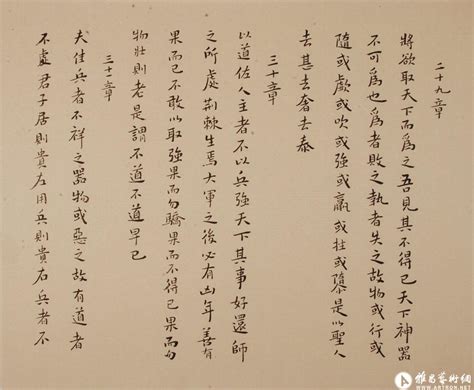 二十九章
將欲取天下而為之吾見其不得已天下神器
不可為也為者敗之執者失之故物或行或
隨或歔或吹或強或羸或挫或隳是以聖人
去甚去奢去泰
三十章
以道佐人主者不以兵強天下其事好還師
之所處荊棘生焉大軍之後必有凶年善有
果而已不敢以取強果而勿驕果而不得已果而勿
物壯則老是謂不道不道早已
三十一章
夫佳兵者不祥之器物或惡之故有道者
不處君子居則貴左用兵則貴右兵者不
雅昌藝術網
WWW.ARTRON.NET